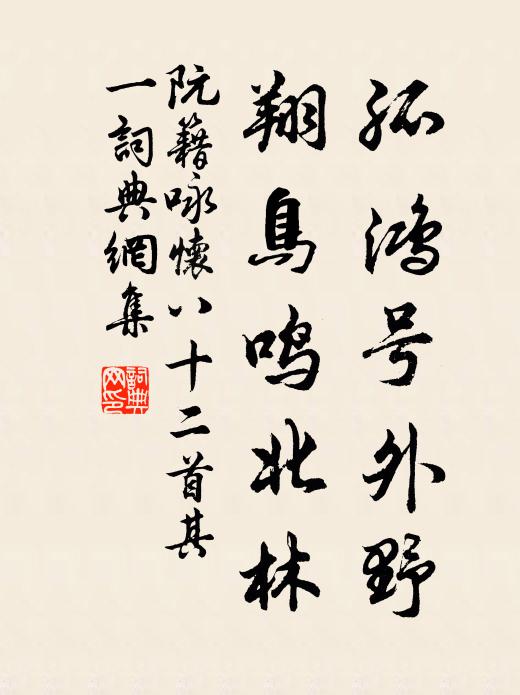 孤鸿号外野
翔鳥鸣北林
阮籍咏懷八十二首其
一詞典網集
詞典
网印